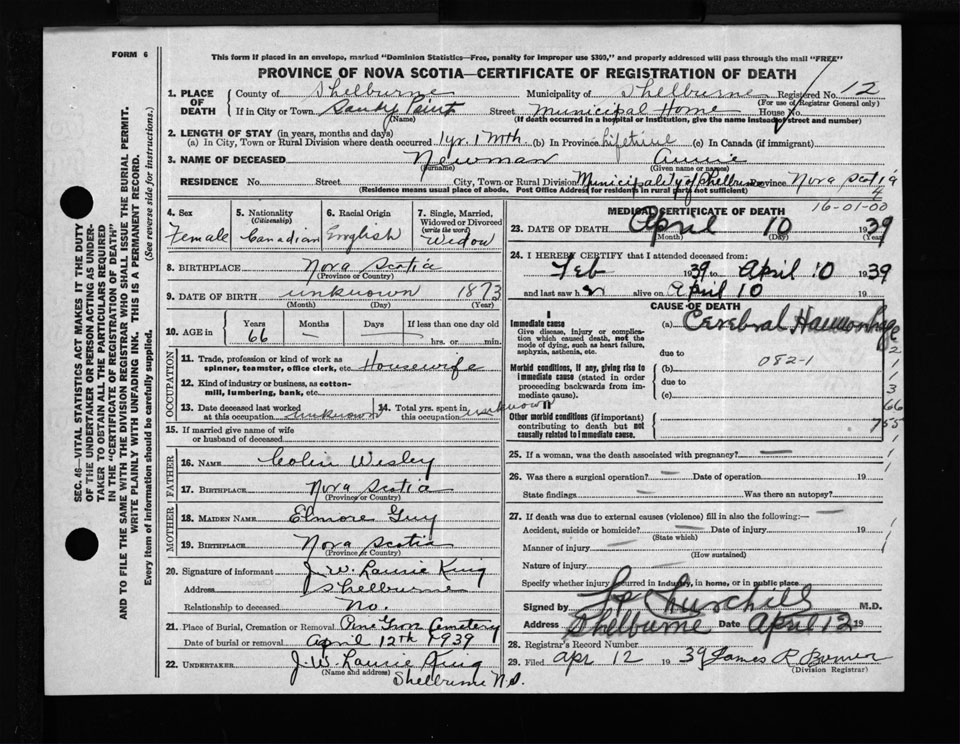 FORM 6
This form if placed in an envelope, marked "Dominion Statistics—Free, penalty for improper use $300," and properly addressed will pass through the mail "FREE"
PROVINCE OF NOVA SCOTIA—CERTIFICATE OF REGISTRATION OF DEATH
SEC. 46—VITAL STATISTICS ACT MAKES IT THE DUTY
OF THE UNDERTAKER OR PERSON ACTING AS UNDER-
TAKER TO OBTAIN ALL THE PARTICULARS REQUIRED
IN THE "CERTIFICATE OF REGISTRATION OF DEATH"
AND TO FILE THE SAME WITH THE DIVISION REGISTRAR WHO SHALL ISSUE THE BURIAL PERMIT.
WRITE PLAINLY WITH UNFADING INK. THIS IS A PERMANENT RECORD.
Every item of information should be carefully supplied. (See reverse side for instructions.)
1. PLACE OF DEATH County of Shelburne Municipality of Shelburne Registered No. 12
(For use of Registrar General only)
If in City or Town Sandy Point Street Municipal Home House No.
(Name) (If death occurred in a hospital or institution, give the name instead of street and number)
2. LENGTH OF STAY (in years, months and days)
(a) In City, Town or Rural Division where death occurred 1 yr. 1 Mth. (b) In Province Lifetime (c) In Canada (if immigrant)
3. NAME OF DECEASED Newman Annie
(Surname) (Given name or names)
RESIDENCE No. Street City, Town or Rural Division Municipality of Shelburne Province Nova Scotia
(Residence means usual place of abode. Post Office Address for residents in rural parts not sufficient)
4
16-01-00
4. Sex Female
5. Nationality (Citizenship) Canadian
6. Racial Origin English
7. Single, Married, Widowed or Divorced (write the word) Widow
8. BIRTHPLACE Nova Scotia
(Province or Country)
9. DATE OF BIRTH unknown 1873
(Month) (Day) (Year)
10. AGE in Years Months Days If less than one day old
66 — — hrs. or min.
OCCUPATION
11. Trade, profession or kind of work as
spinner, teamster, office clerk, etc. Housewife
12. Kind of industry or business, as cotton-
mill, lumbering, bank, etc.
13. Date deceased last worked at this occupation unknown
14. Total yrs. spent in this occupation unknown
15. If married give name of wife
or husband of deceased
FATHER
16. NAME Colin Wesley
17. BIRTHPLACE Nova Scotia
(Province or Country)
MOTHER
18. MAIDEN NAME Elmore Guy
19. BIRTHPLACE Nova Scotia
(Province or Country)
20. Signature of informant J. W. Laurie King
Address Shelburne
Relationship to deceased No.
21. Place of Burial, Cremation or Removal Pine Grove Cemetery
Date of burial or removal April 12th 1939
22. UNDERTAKER J. W. Laurie King
(Name and address)
Shelburne N.S.
MEDICAL CERTIFICATE OF DEATH
23. DATE OF DEATH April 10 1939
(Month) (Day) (Year)
24. I HEREBY CERTIFY that I attended deceased from:
Feb 1939 to April 10 1939
and last saw her alive on April 10 19
CAUSE OF DEATH
I
Immediate cause
Give disease, injury or complica-
tion which caused death, not the
mode of dying, such as heart failure,
asphyxia, asthenia, etc.
(a) Cerebral Haemorrhage
due to
Morbid conditions, if any, giving rise to
immediate cause (stated in order
proceeding backwards from im-
mediate cause).
(b) 082-1
due to
(c)
II
Other morbid conditions (if important)
contributing to death but not
causally related to immediate cause.
2
1
1
3
66
755
1
25. If a woman, was the death associated with pregnancy?
26. Was there a surgical operation? Date of operation 19
State findings Was there an autopsy?
27. If death was due to external causes (violence) fill in also the following:—
Accident, suicide or homicide? Date of injury 19
(State which)
Manner of injury
(How sustained)
Nature of injury
Specify whether injury occurred in industry, in home, or in public place
Signed by Churchill M.D.
Address Shelburne Date April 12 19
28. Registrar's Record Number
29. Filed Apr 12 1939 James R Bower
(Division Registrar)